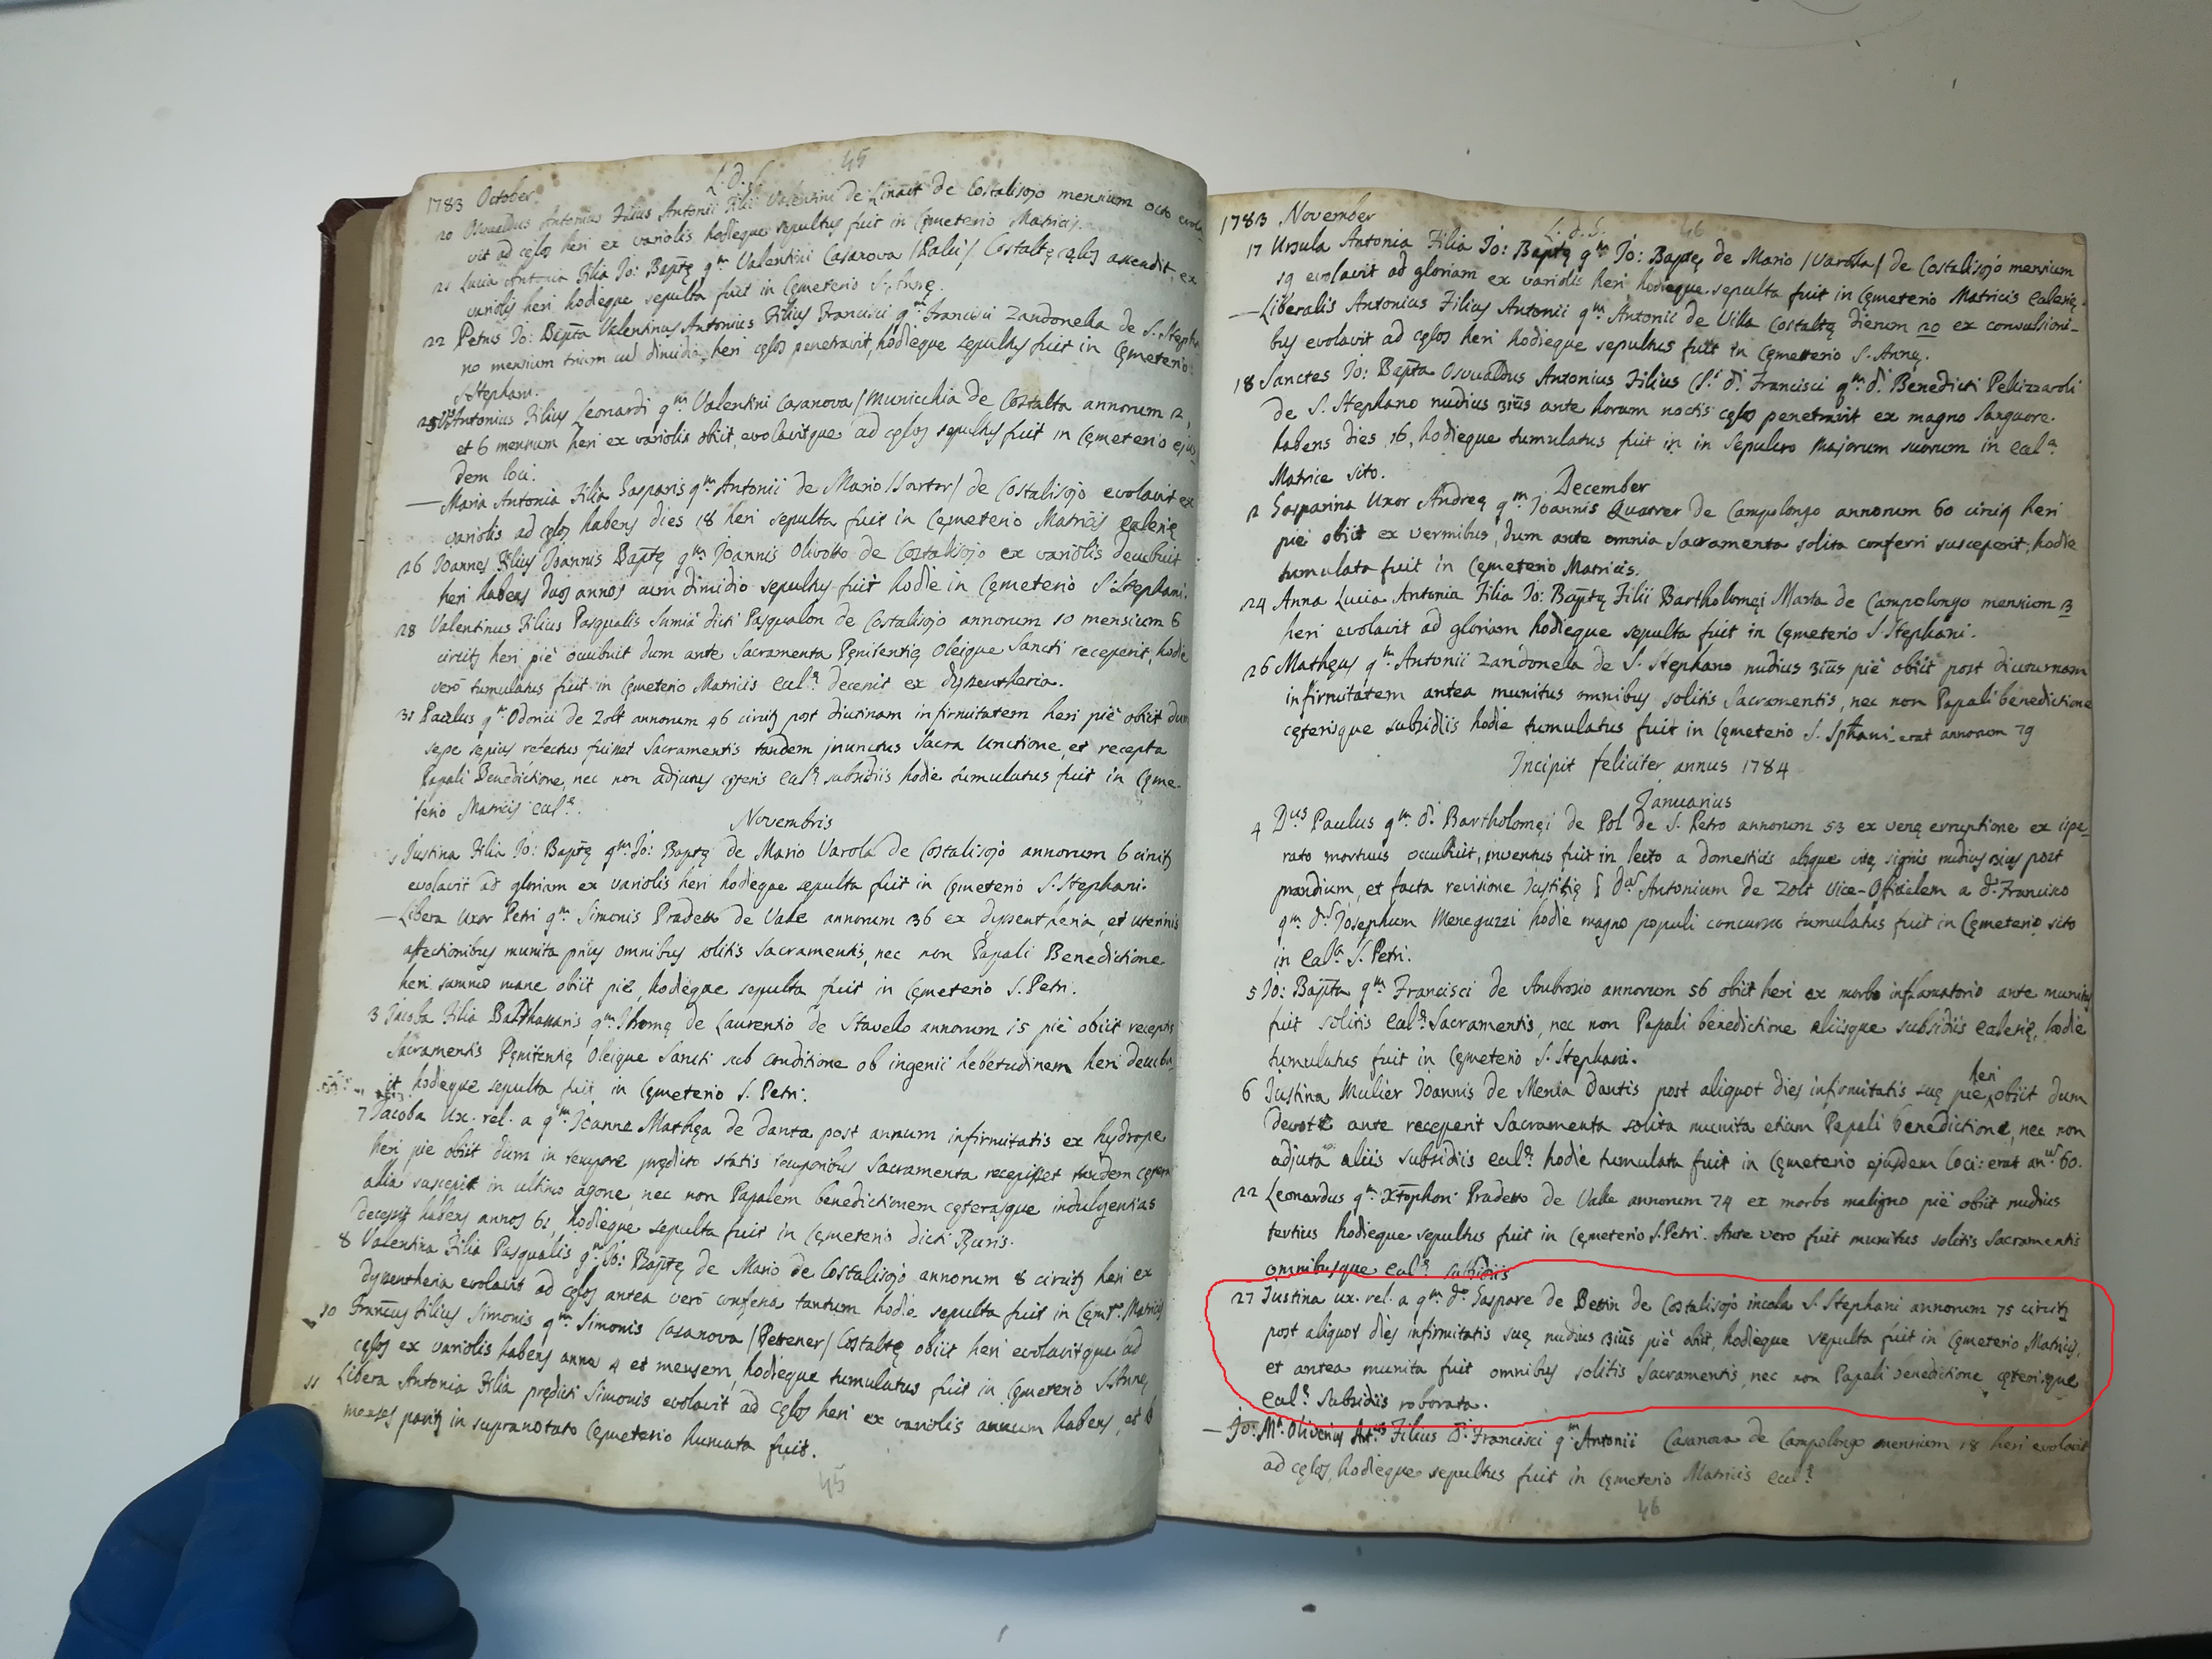 45
L. d. S.
1783 October
20 Osvaldus Antonius Filius Antonii Filii Valentini de Linait de Costalisojo mensium octo evola-
vit ad cęlos heri ex variolis, hodieque sepultus fuit in Cęmeterio Matricis.
21 Lucia Antonia Filia Jo: Baptę qm Valentini Casanova /Palui/ Costaltę cęlos ascendit ex
variolis heri hodieque sepulta fuit in Cęmeterio S. Annę.
22 Petrus Jo: Bapta Valentinus Antonius Filius Francisci qm Francisci Zandonella de S. Stepha
no mensium trium cum dimidio, heri cęlos penetravit, hodieque sepultus fuit in Cęmeterio
S. Stephani.
25 Antonius Filius Leonardi qm Valentini Casanova /Municchia de Costalta annorum 2
et 6 mensium heri ex variolis obiit, evolavitque ad cęlos sepultus fuit in Cęmeterio ejus
dem loci.
— Maria Antonia Filia Gasparis qm Antonii de Mario /Sartor/ de Costalisojo evolavit ex
variolis ad cęlos habens dies 18 heri sepulta fuit in Cęmeterio Matricis Ealerię
26 Joannes Filius Joannis Baptę qm Joannis Olivotto de Costalisojo ex variolis decubuit
heri habens duos annos cum dimidio sepultus fuit hodie in Cęmeterio S. Stephani.
28 Valentinus Filius Pasqualis Sumia dicti Pasqualon de Costalisojo annorum 10 mensium 6
circitę heri piè occubuit dum ante Sacramenta Pęnitentię Oleique Sancti receperit, hodie
verò tumulatus fuit in Cęmeterio Matricis Ealę decenit ex dyssentheria.
31 Paulus qm Odorici de Zolt annorum 46 circitę post diutinam infirmitatem heri piè obiit dum
sepe sepius refectus fuisset Sacramentis tandem inunctus Sacra Unctione, et recepta
Papali Benedictione, nec non adjutus cęteris Ealę subsidiis hodie tumulatus fuit in Cęme-
terio Matricis Ealę.
Novembris
1 Justina Filia Jo: Baptę qm Jo: Baptę de Mario Varola de Costalisojo annorum 6 circitę
evolavit ad gloriam ex variolis heri hodieque sepulta fuit in Cęmeterio S. Stephani.
— Libera Uxor Petri qm Simonis Pradetto de Valle annorum 36 ex dyssentheria, et uterinis
affectionibus munita prius omnibus solitis Sacramentis, nec non Papali Benedictione
heri summo mane obiit piè, hodieque sepulta fuit in Cęmeterio S. Petri.
3 Jacoba Filia Balthassaris qm Thomę de Laurentio de Stavello annorum 15 piè obiit receptis
Sacramentis Pęnitentię, Oleique Sancti sub conditione ob ingenii hebetudinem heri decubu
it, hodieque sepulta fuit in Cęmeterio S. Petri.
7 Jacoba Ux. rel. a qm Joanne Mathęa de Danta post annum infirmitatis ex hydrope
heri pie obiit dum in tempore prędicto statis temporibus Sacramenta recepisset tandem cętera
alia suscepit in ultimo agone, nec non Papalem benedictionem cęterasque indulgentias
decepit habens annos 61, hodieque sepulta fuit in Cęmeterio dicti Ruris.
8 Valentina Filia Pasqualis qm Jo: Baptę de Mario de Costalisojo annorum 8 circitę heri ex
dyssentheria evolavit ad cęlos antea verò confessa tantum hodie sepulta fuit in Cęmto Matricis
10 Francus Filius Simonis qm Simonis Casanova /Pettener/ Costaltę obiit heri evolavitque ad
cęlos ex variolis habens annos 4 et mensem, hodieque tumulatus fuit in Cęmeterio S. Annę
11 Libera Antonia Filia prędicti Simonis evolavit ad cęlos heri ex variolis annum habens, et 6
menses paritę in supranotato Cęmeterio humata fuit.
45
46
L. d. S.
1783 November
17 Ursula Antonia Filia Jo: Baptę qm Jo: Baptę de Mario /Varola/ de Costalisojo mensium
19 evolavit ad gloriam ex variolis heri hodieque sepulta fuit in Cęmeterio Matricis Ealerię.
— Liberalis Antonius Filius Antonii qm Antonii de Villa Costaltę dierum 20 ex convulsioni-
bus evolavit ad cęlos heri hodieque sepultus fuit in Cęmeterio S. Annę.
18 Sanctes Jo: Bapta Osvaldus Antonius Filius Sr di Francisci qm di Benedicti Pellizzaroli
de S. Stephano nudius 3ius ante horam noctis cęlos penetravit ex magno languore.
habens dies 16, hodieque tumulatus fuit in in Sepulcro Majorum suorum in Eala
Matrice sito.
December
2 Gasparina Uxor Andreę qm Joannis Quarrer de Campolongo annorum 60 circitę heri
piè obiit ex vermibus, dum ante omnia Sacramenta solita conferri susceperit, hodie
tumulata fuit in Cęmeterio Matricis.
24 Anna Lucia Antonia Filia Jo: Baptę Filii Bartholomęi Masta de Campolongo mensium 13
heri evolavit ad gloriam hodieque sepulta fuit in Cęmeterio S. Stephani.
26 Mathęus qm Antonii Zandonella de S. Stephano nudius 3ius piè obiit post diuturnam
infirmitatem antea munitus omnibus solitis Sacramentis, nec non Papali benedictione
cęterisque subsidiis hodie tumulatus fuit in Cęmeterio S. Sphani erat annorum 79
Incipit feliciter annus 1784
Januarius
4 Dnus Paulus qm di Bartholomęi de Pol de S. Petro annorum 53 ex venę erruptione ex ispe-
rato mortuus occubuit, inventus fuit in lecto a domesticis absque vitę signis nudius 3ius post
prandium, et facta revisione Justitię p dum Antonium de Zolt Vice-Officialem a do Francisco
qm di Josephum Meneguzzi hodie magno populi concursu tumulatus fuit in Cęmeterio sito
in Eala S. Petri.
5 Jo: Bapta qm Francisci de Ambrosio annorum 56 obiit heri ex morbo inflamatorio ante munitus
fuit solitis Ealę Sacramentis, nec non Papali benedictione aliisque subsidiis Ealerię, hodie
tumulatus fuit in Cęmeterio S. Stephani.
6 Justina Mulier Joannis de Menia Dantis post aliquot dies infirmitatis suę pie heri obiit dum
devotè ante receperit Sacramenta solita munita etiam Papali benedictione, nec non
adjuta aliis subsidiis Ealę hodie tumulata fuit in Cęmeterio ejusdem loci: erat anum 60.
22 Leonardus qm Xtophori Pradetto de Valle annorum 74 ex morbo maligno piè obiit nudius
tertius hodieque sepultus fuit in Cęmeterio S. Petri. Ante vero fuit munitus solitis Sacramentis
omnibusque Ealę subsidiis
27 Justina ux. rel. a qm do Gaspare de Bettin de Costalisojo incola S. Stephani annorum 75 circitę
post aliquot dies infirmitatis suę nudius 3ius piè obiit, hodieque sepulta fuit in Cęmeterio Matricis,
et antea munita fuit omnibus solitis Sacramentis, nec non Papali benedictione cęterisque
Ealę Subsidiis roborata.
— Jo: Ma Oliverius Antus Filius Di Francisci qm Antonii Casanova de Campolongo mensium 18 heri evolavit
ad cęlos, hodieque sepultus fuit in Cęmeterio Matricis Ealę
46